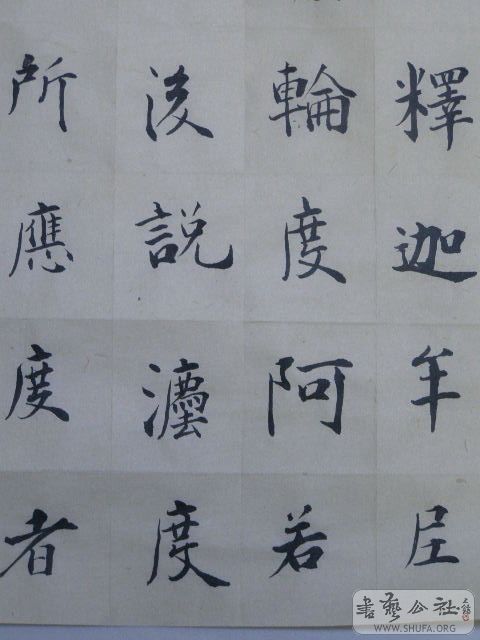 釋迦牟尼
輪度阿若
後説灋度
所應度者
書藝公社
WWW.SHUFA.ORG